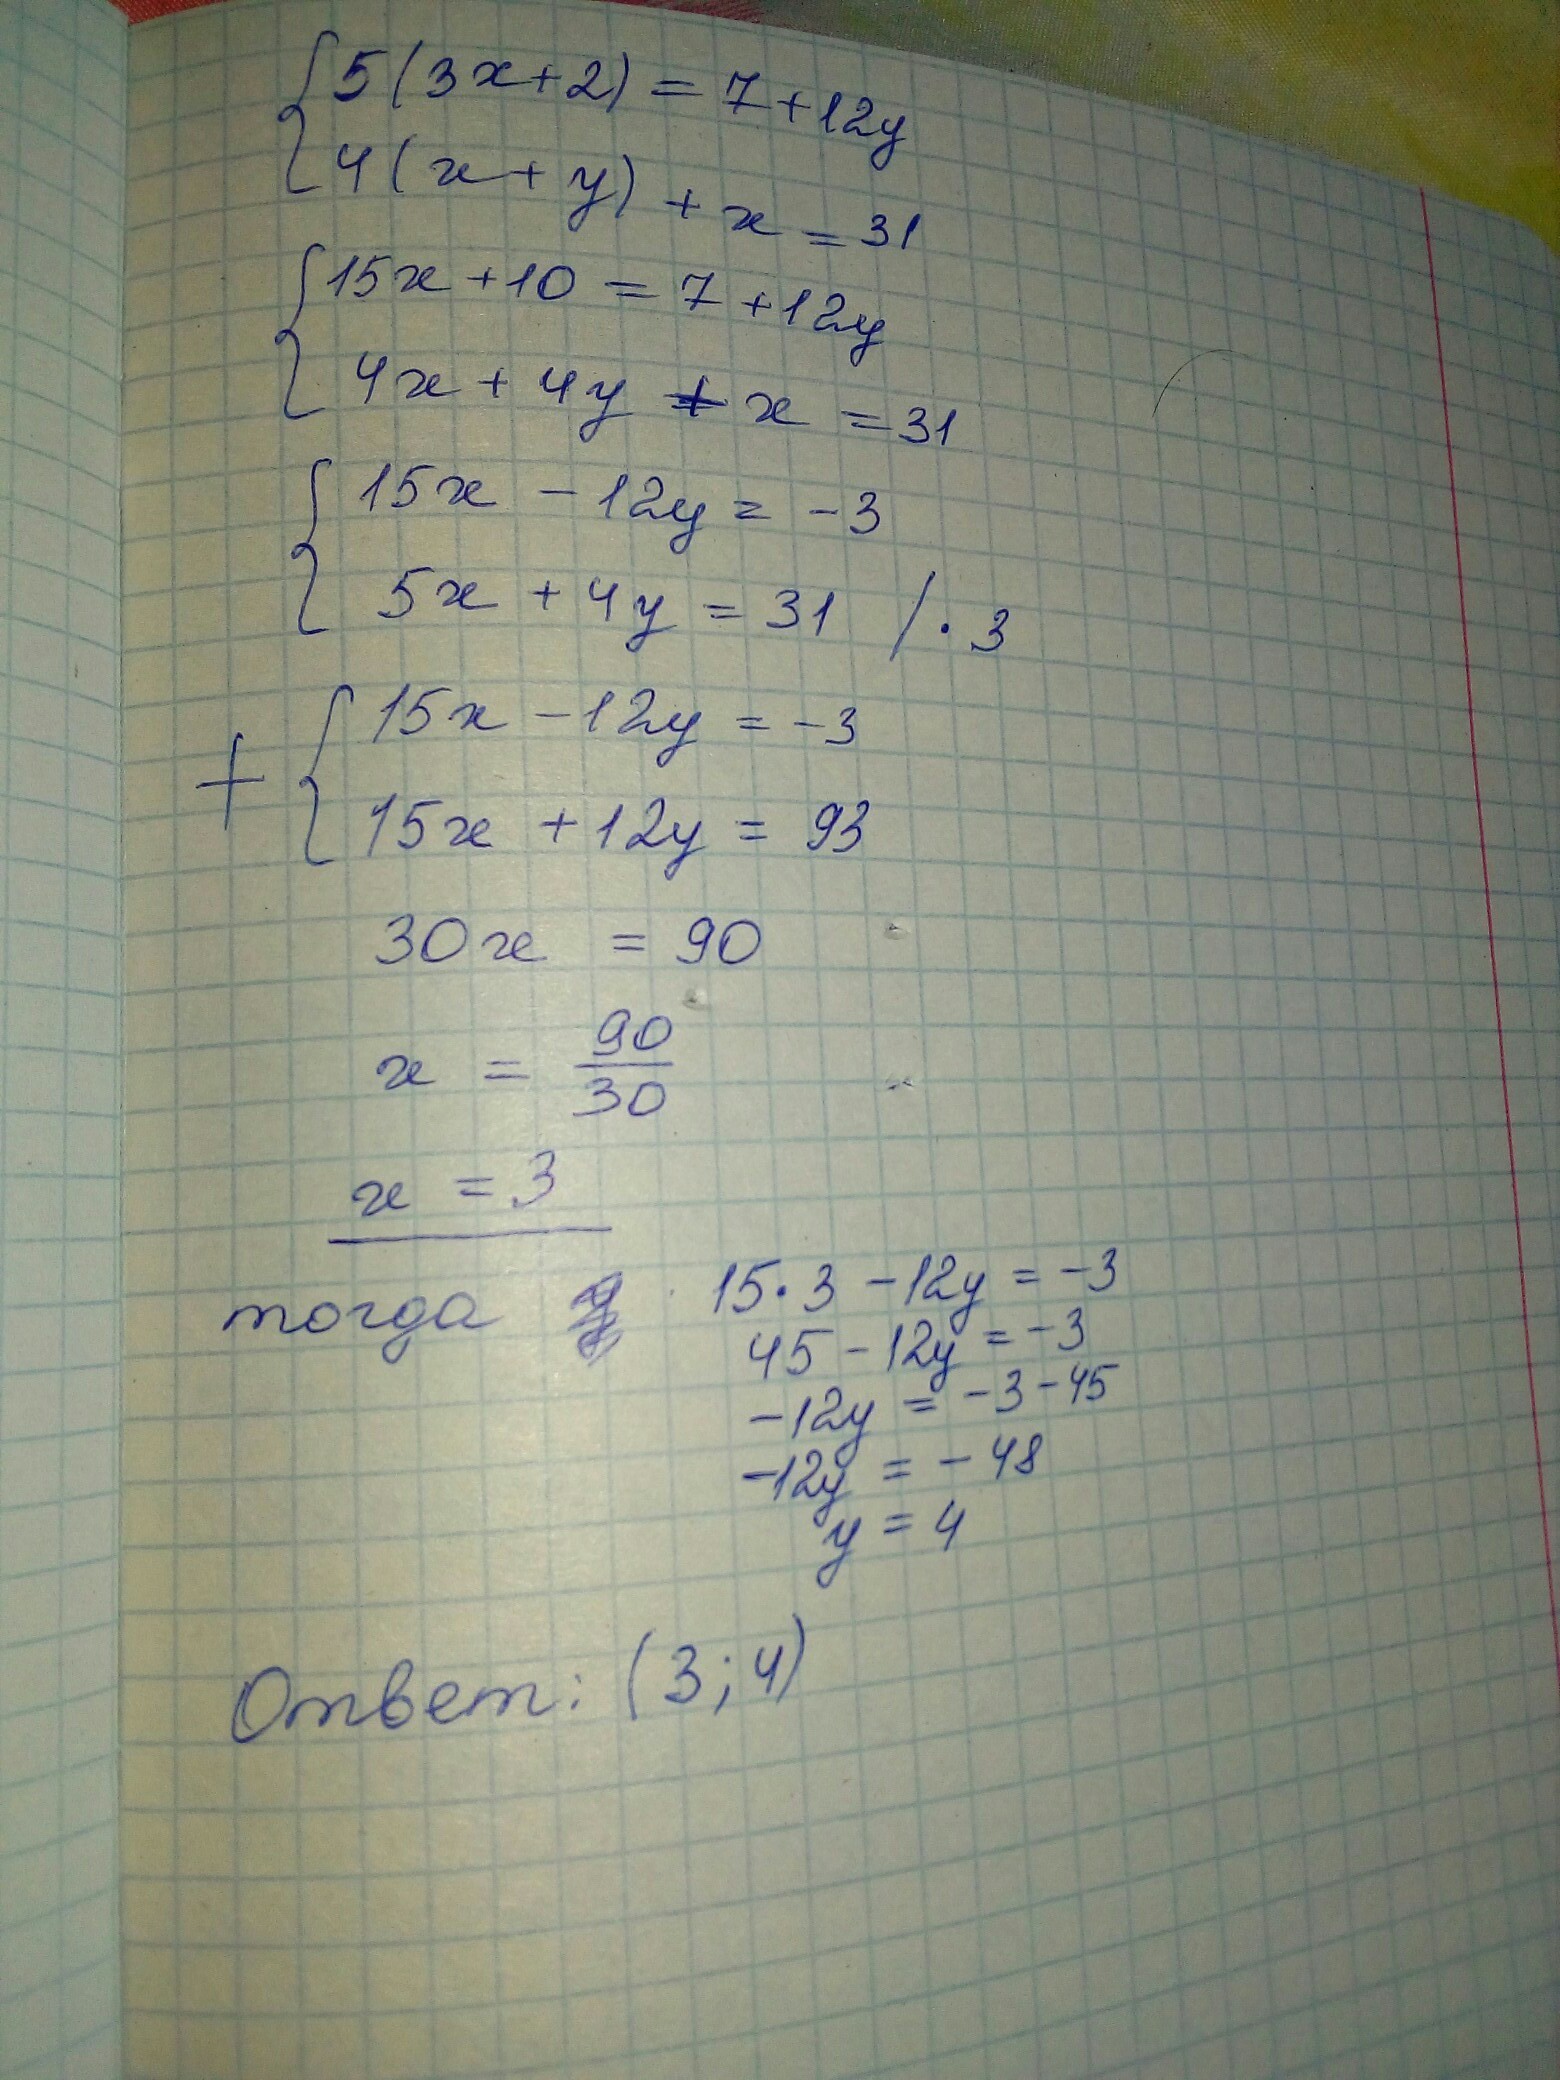 5(3x+2) = 7+12y
4(x+y)+x=31
15x+10=7+12y
4x+4y+x=31
15x-12y=-3
5x+4y=31 /·3
+ 15x-12y=-3
15x+12y=93
30x=90
x=90/30
x=3
тогда 15·3-12y=-3
45-12y=-3
-12y=-3-45
-12y=-48
y=4
Ответ: (3;4)